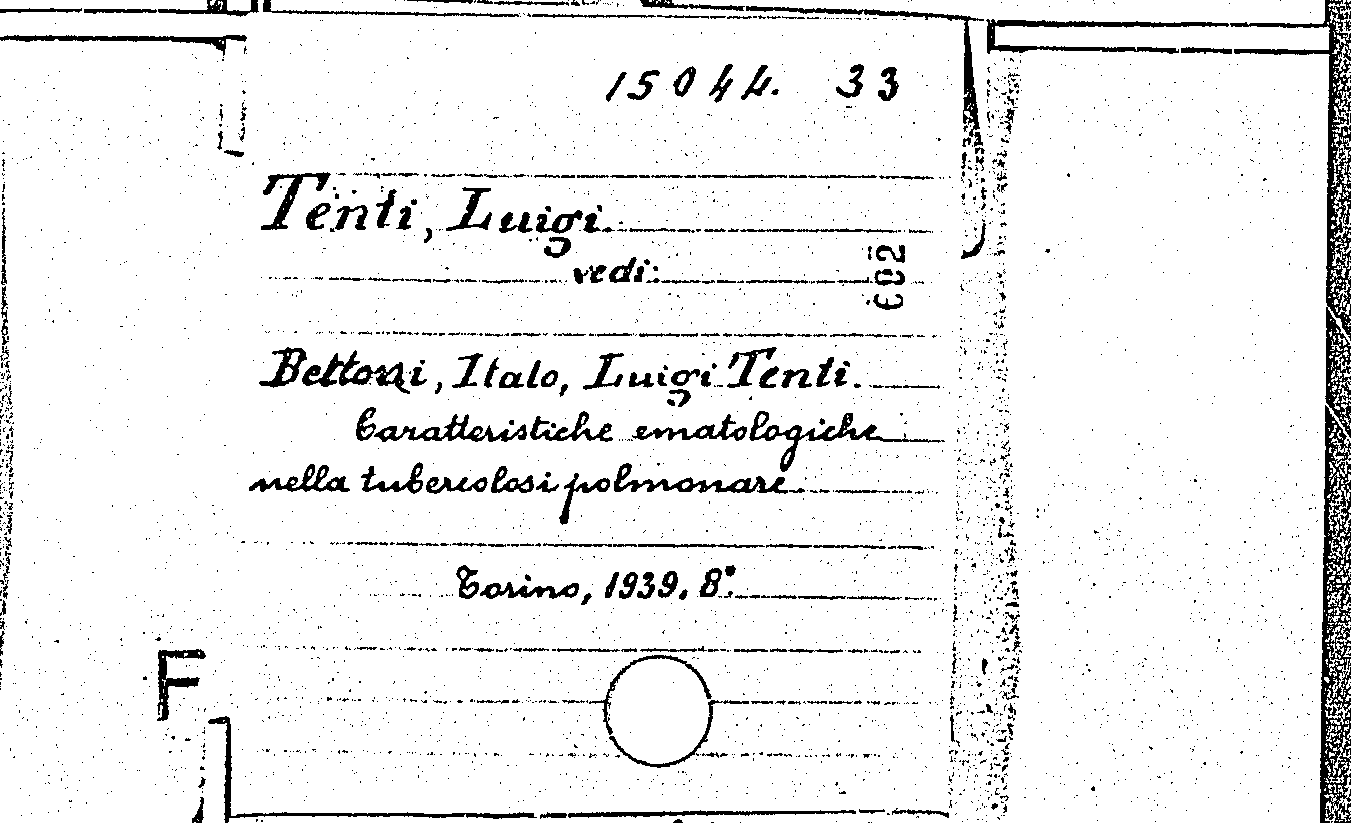 15044. 33
Tenti, Luigi.
vedi:
602
Bettozzi, Italo, Luigi Tenti.
Caratteristiche ematologiche
nella tubercolosi polmonare.
Torino, 1939. 8°.
F